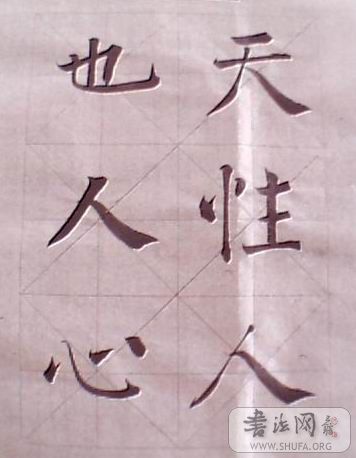 天性人
也人心
書法网
WWW.SHUFA.ORG